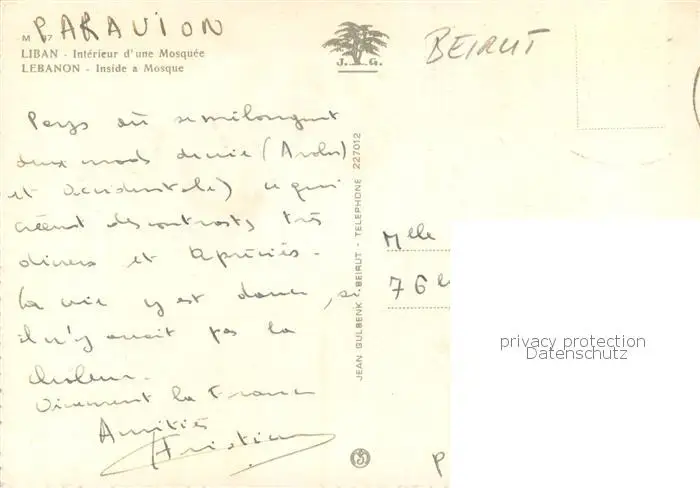 PAR AVION
M 
LIBAN - Intérieur d'une Mosquée
LEBANON - Inside a Mosque
J. G.
BEIRUT
Pays où se mélangent
deux mods de vie (Arabe)
et Occidentale) ce qui
créent des contrasts très
divers et Apréciés -
La vie y est douce, si
il n'y avait pas la
chaleur.
Vivement la France
Amitiés
Christian
JEAN GULBENK - BEIRUT - TELEPHONE 227012
Mlle
76
P
privacy protection
Datenschutz